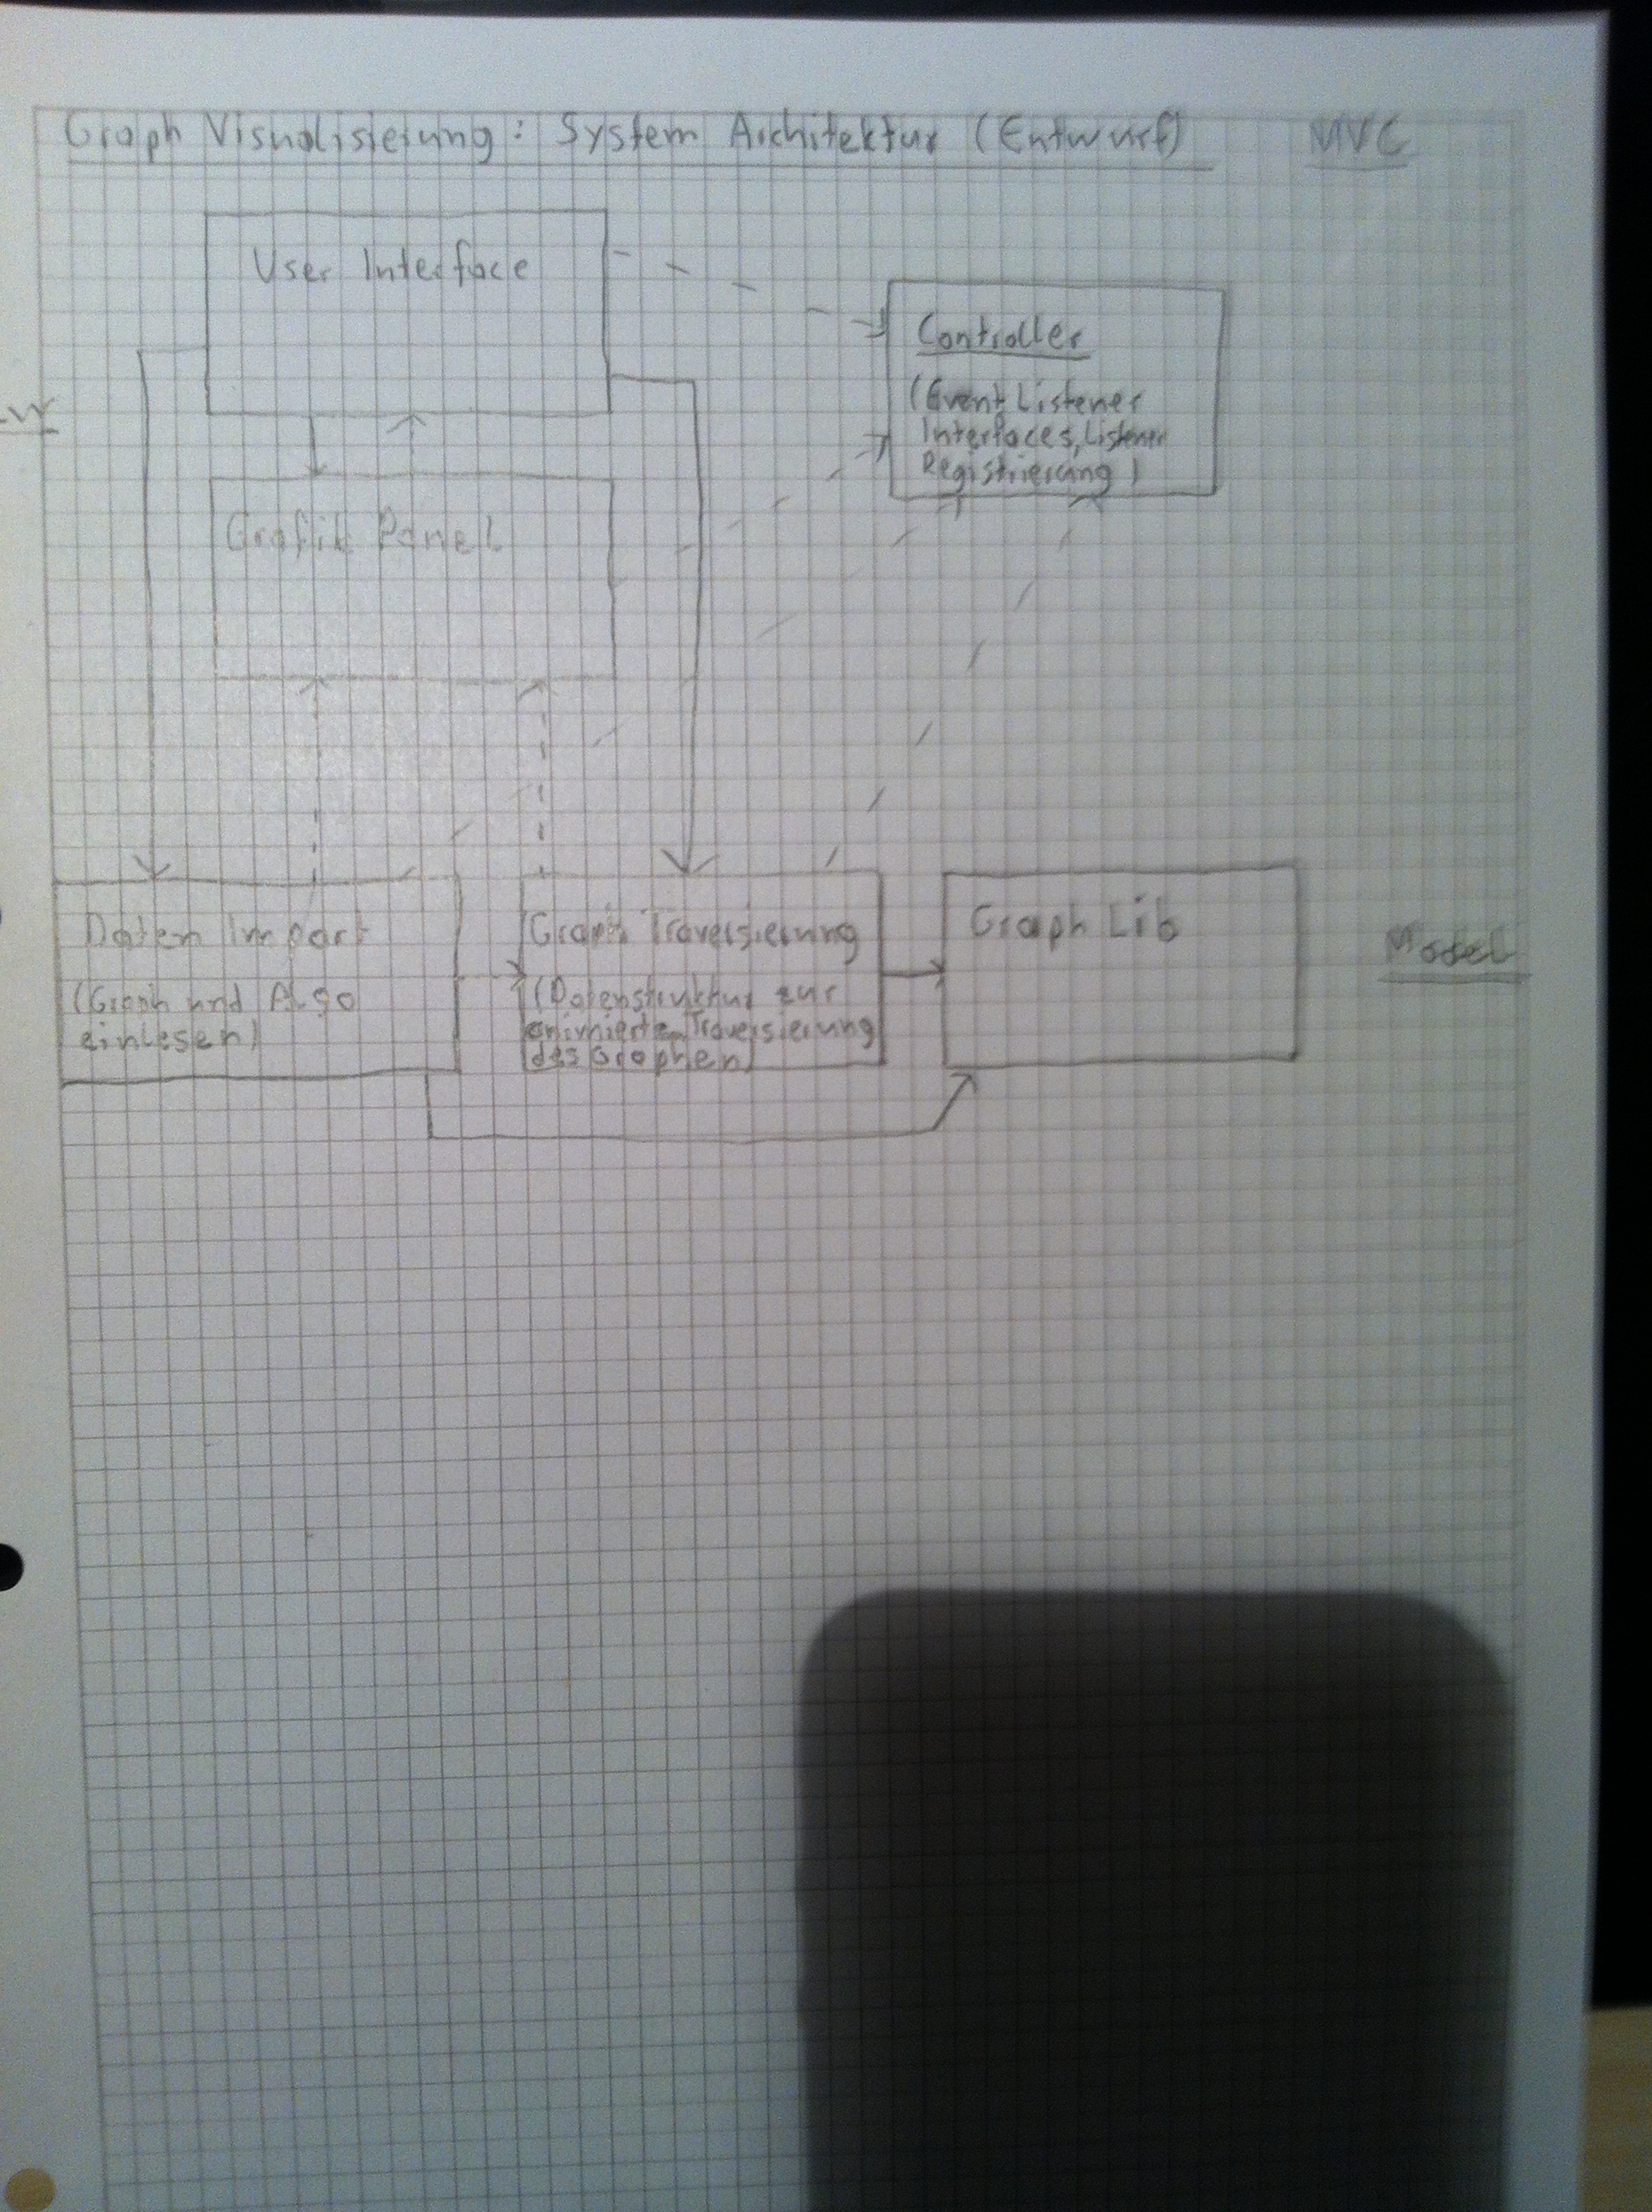 Graph Visualisierung: System Architektur (Entwurf) MVC
User Interface
Controller
(Event Listener
Interfaces, Listener
Registrierung)
Grafik Panel
Daten Import
(Graph und Algo
einlesen)
Graph Traversierung
(Datenstruktur zur
animierten Traversierung
des Graphen)
Graph Lib
Model